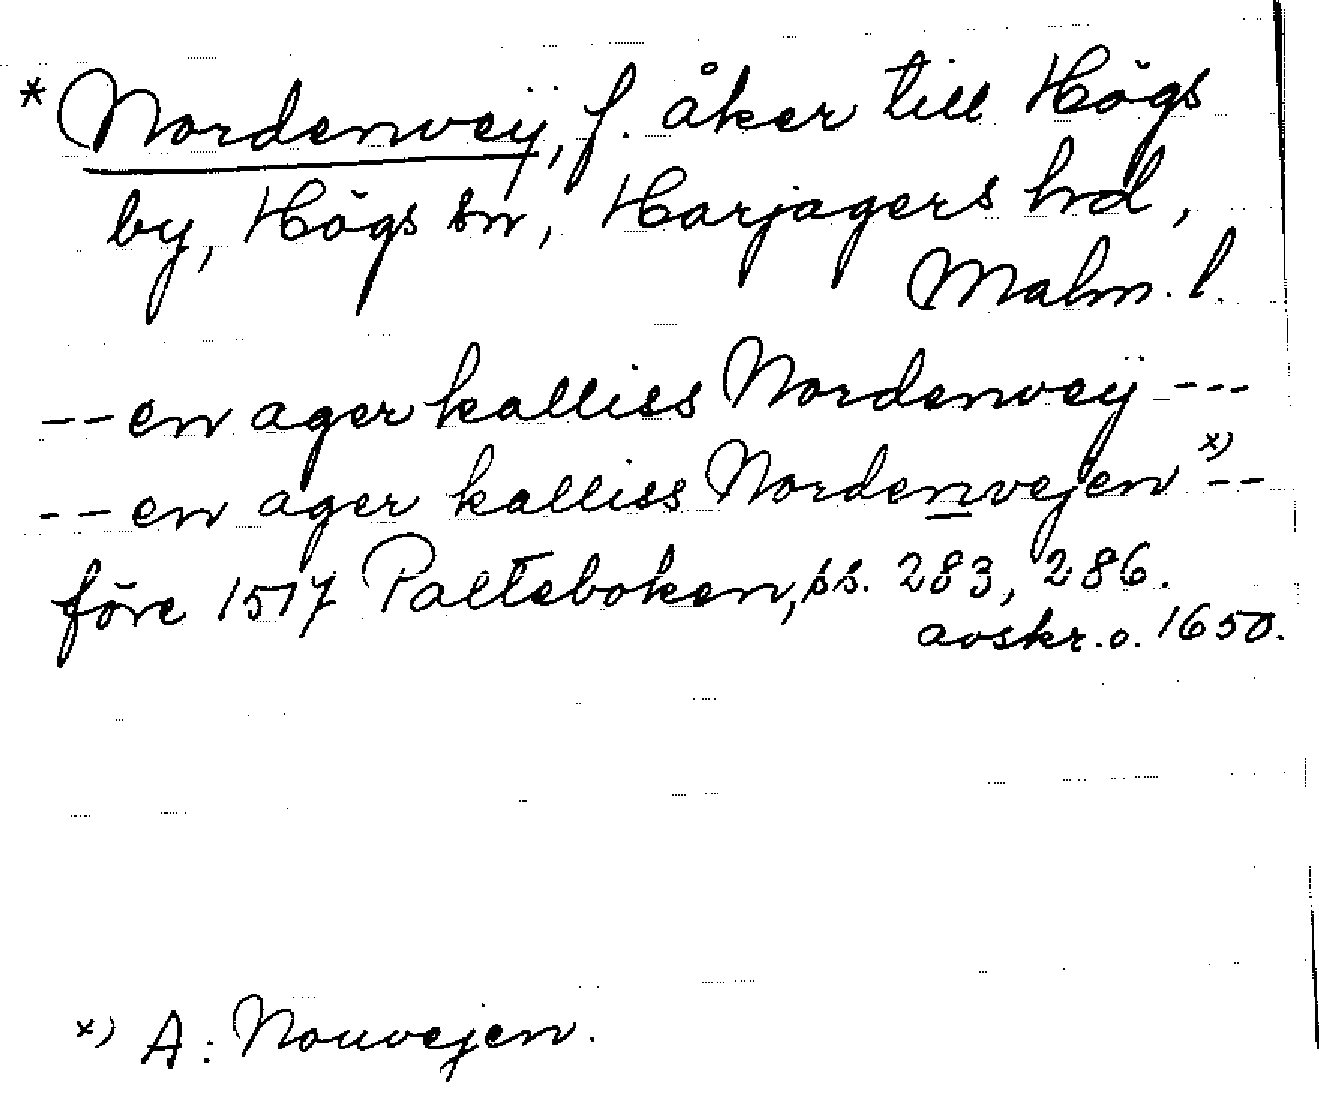 * Nordenveÿ, f. åker till Högs
by, Högs sn, Harjagers hd,
Malm. l.
-- en ager kalliss Nordenveÿ ---
-- en ager kalliss Nordenvejen x) --
före 1517 Palteboken, ss. 283, 286.
avskr. o. 1650.
x) A: Nouvejen.